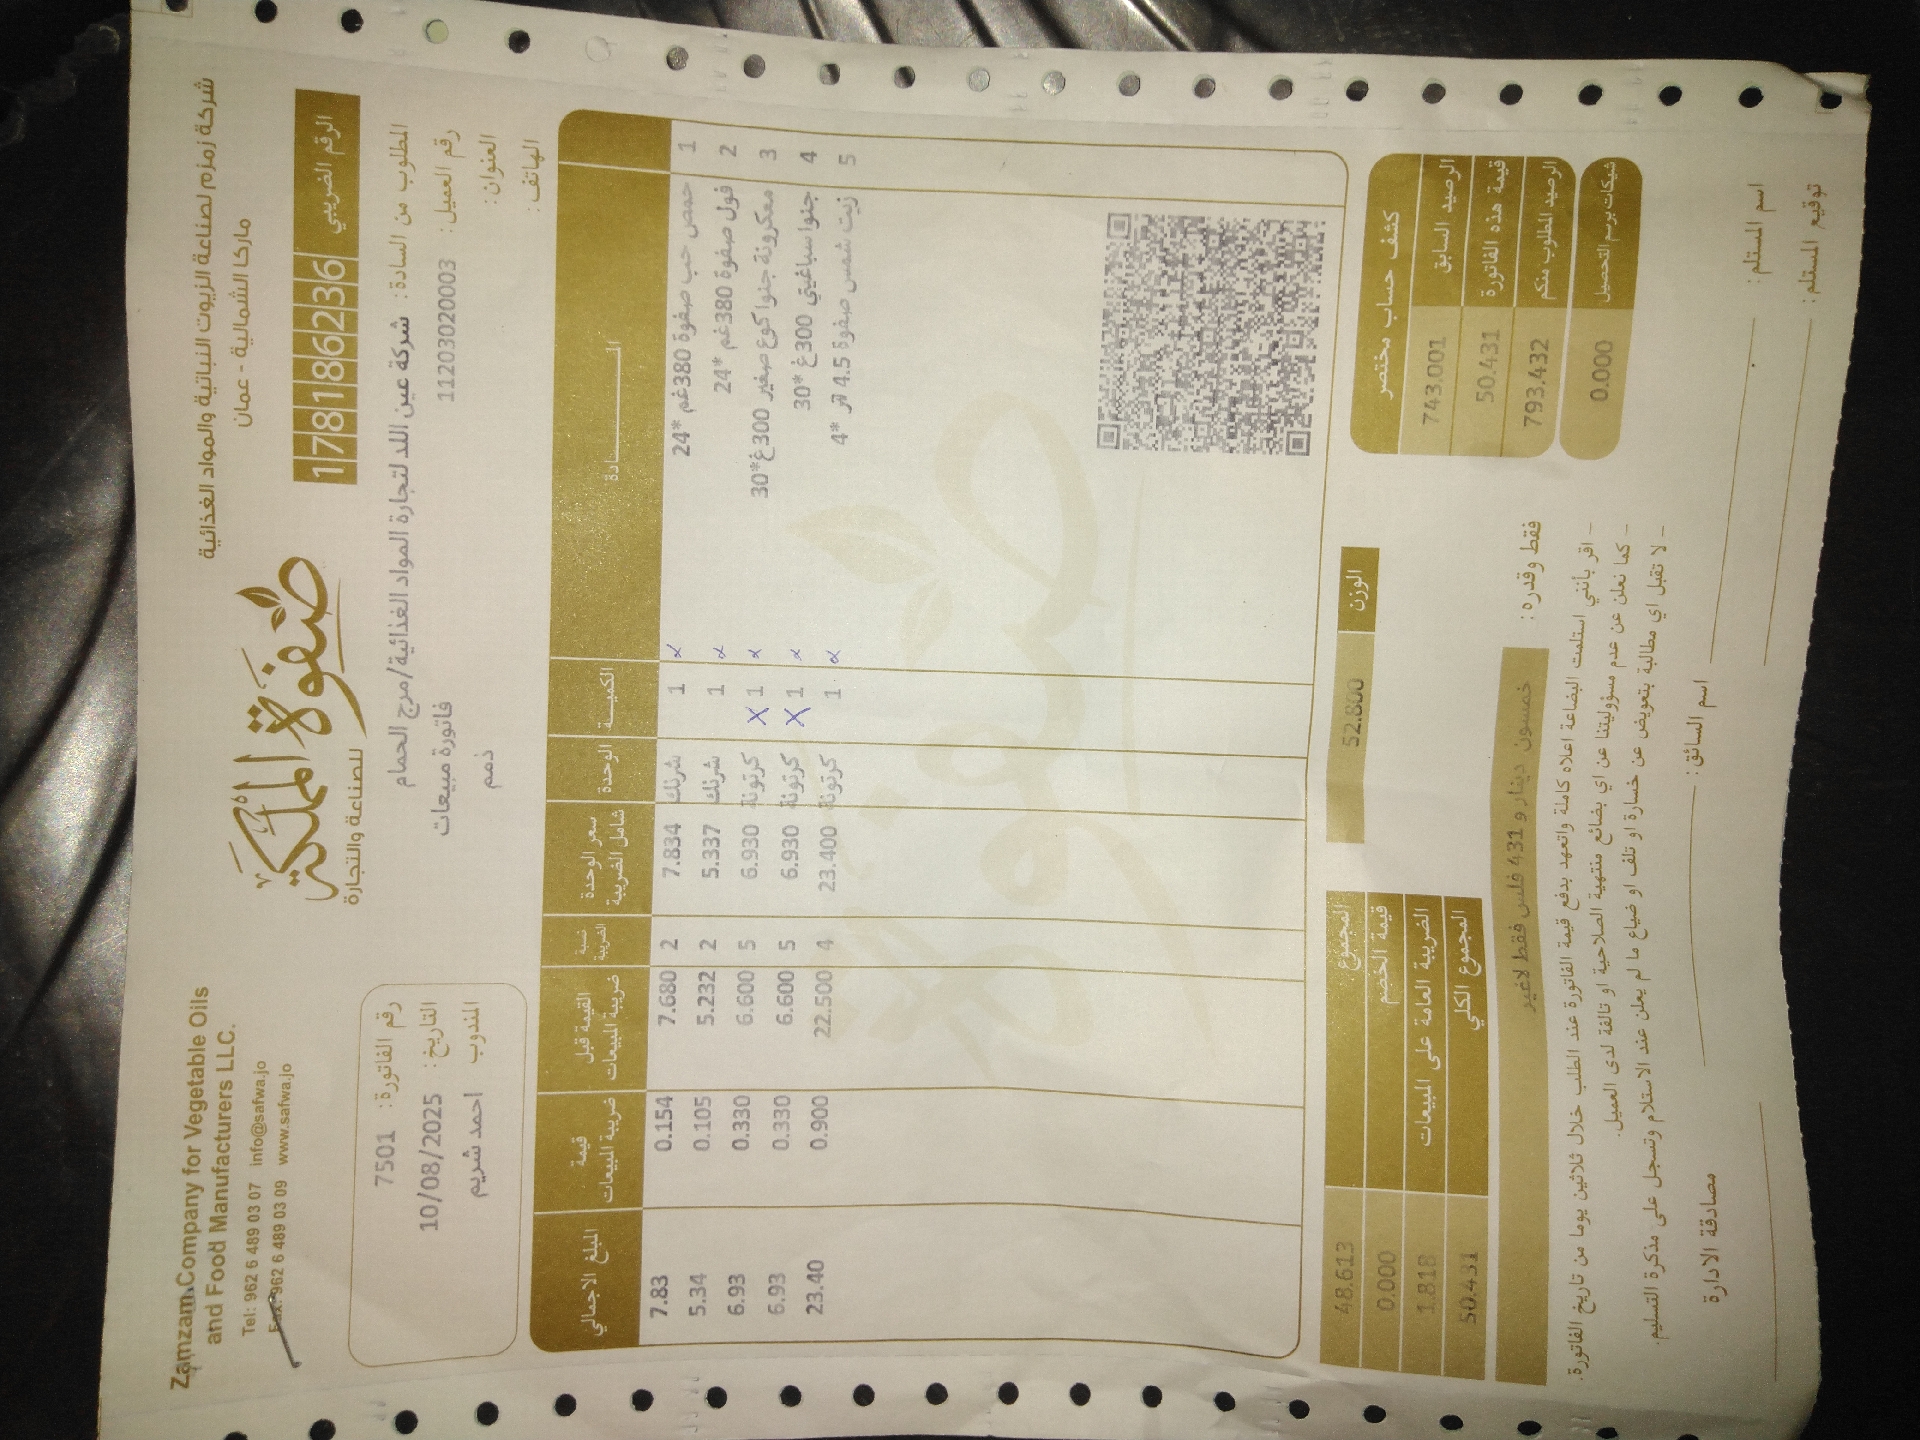 شركة زمزم لصناعة الزيوت النباتية والمواد الغذائية
ماركا الشمالية - عمان
الرقم الضريبي 178186236
صفوة المملكة
للصناعة والتجارة
Zamzam Company for Vegetable Oils
and Food Manufacturers LLC.
Tel: 962 6 489 03 07 info@safwa.jo
Fax: 962 6 489 03 09 www.safwa.jo
المطلوب من السادة : شركة عين اللد لتجارة المواد الغذائية/مرج الحمام
رقم العميل : 1120302003
فاتورة مبيعات
العنوان :
ذمم
الهاتف :
رقم الفاتورة : 7501
التاريخ : 10/08/2025
المندوب احمد شريم
المــــادة الكميـــة الوحدة سعر الوحدة شامل الضريبة نسبة الضريبة القيمة قبل ضريبة المبيعات قيمة ضريبة المبيعات المبلغ الاجمالي
1 حمص حب صفوة 380غم *24 1 شرنك 7.834 2 7.680 0.154 7.83
2 فول صفوة 380غم *24 1 شرنك 5.337 2 5.232 0.105 5.34
3 معكرونة جنوا كوع صغير 300غ*30 1 X كرتونة 6.930 5 6.600 0.330 6.93
4 جنوا سباغيتي 300غ *30 1 X كرتونة 6.930 5 6.600 0.330 6.93
5 زيت شمس صفوة 4.5 لتر *4 1 كرتونة 23.400 4 22.500 0.900 23.40
كشف حساب مختصر
الرصيد السابق 743.001
قيمة هذه الفاتورة 50.431
الرصيد المطلوب منكم 793.432
شيكات برسم التحصيل 0.000
الوزن 52.800
المجموع 48.613
قيمة الخصم 0.000
الضريبة العامة على المبيعات 1.818
المجموع الكلي 50.431
فقط وقدره : خمسون دينار و 431 فلس فقط لاغير
- اقر بأنني استلمت البضاعة اعلاه كاملة واتعهد بدفع قيمة الفاتورة عند الطلب خلال ثلاثين يوما من تاريخ الفاتورة.
- كما نعلن عن عدم مسؤوليتنا عن اي بضائع منتهية الصلاحية او تالفة لدى العميل.
- لا تقبل اي مطالبة بتعويض عن خسارة او تلف او ضياع ما لم يعلن عند الاستلام وتسجل على مذكرة التسليم.
اسم المستلم :
توقيع المستلم :
اسم السائق :
مصادقة الادارة